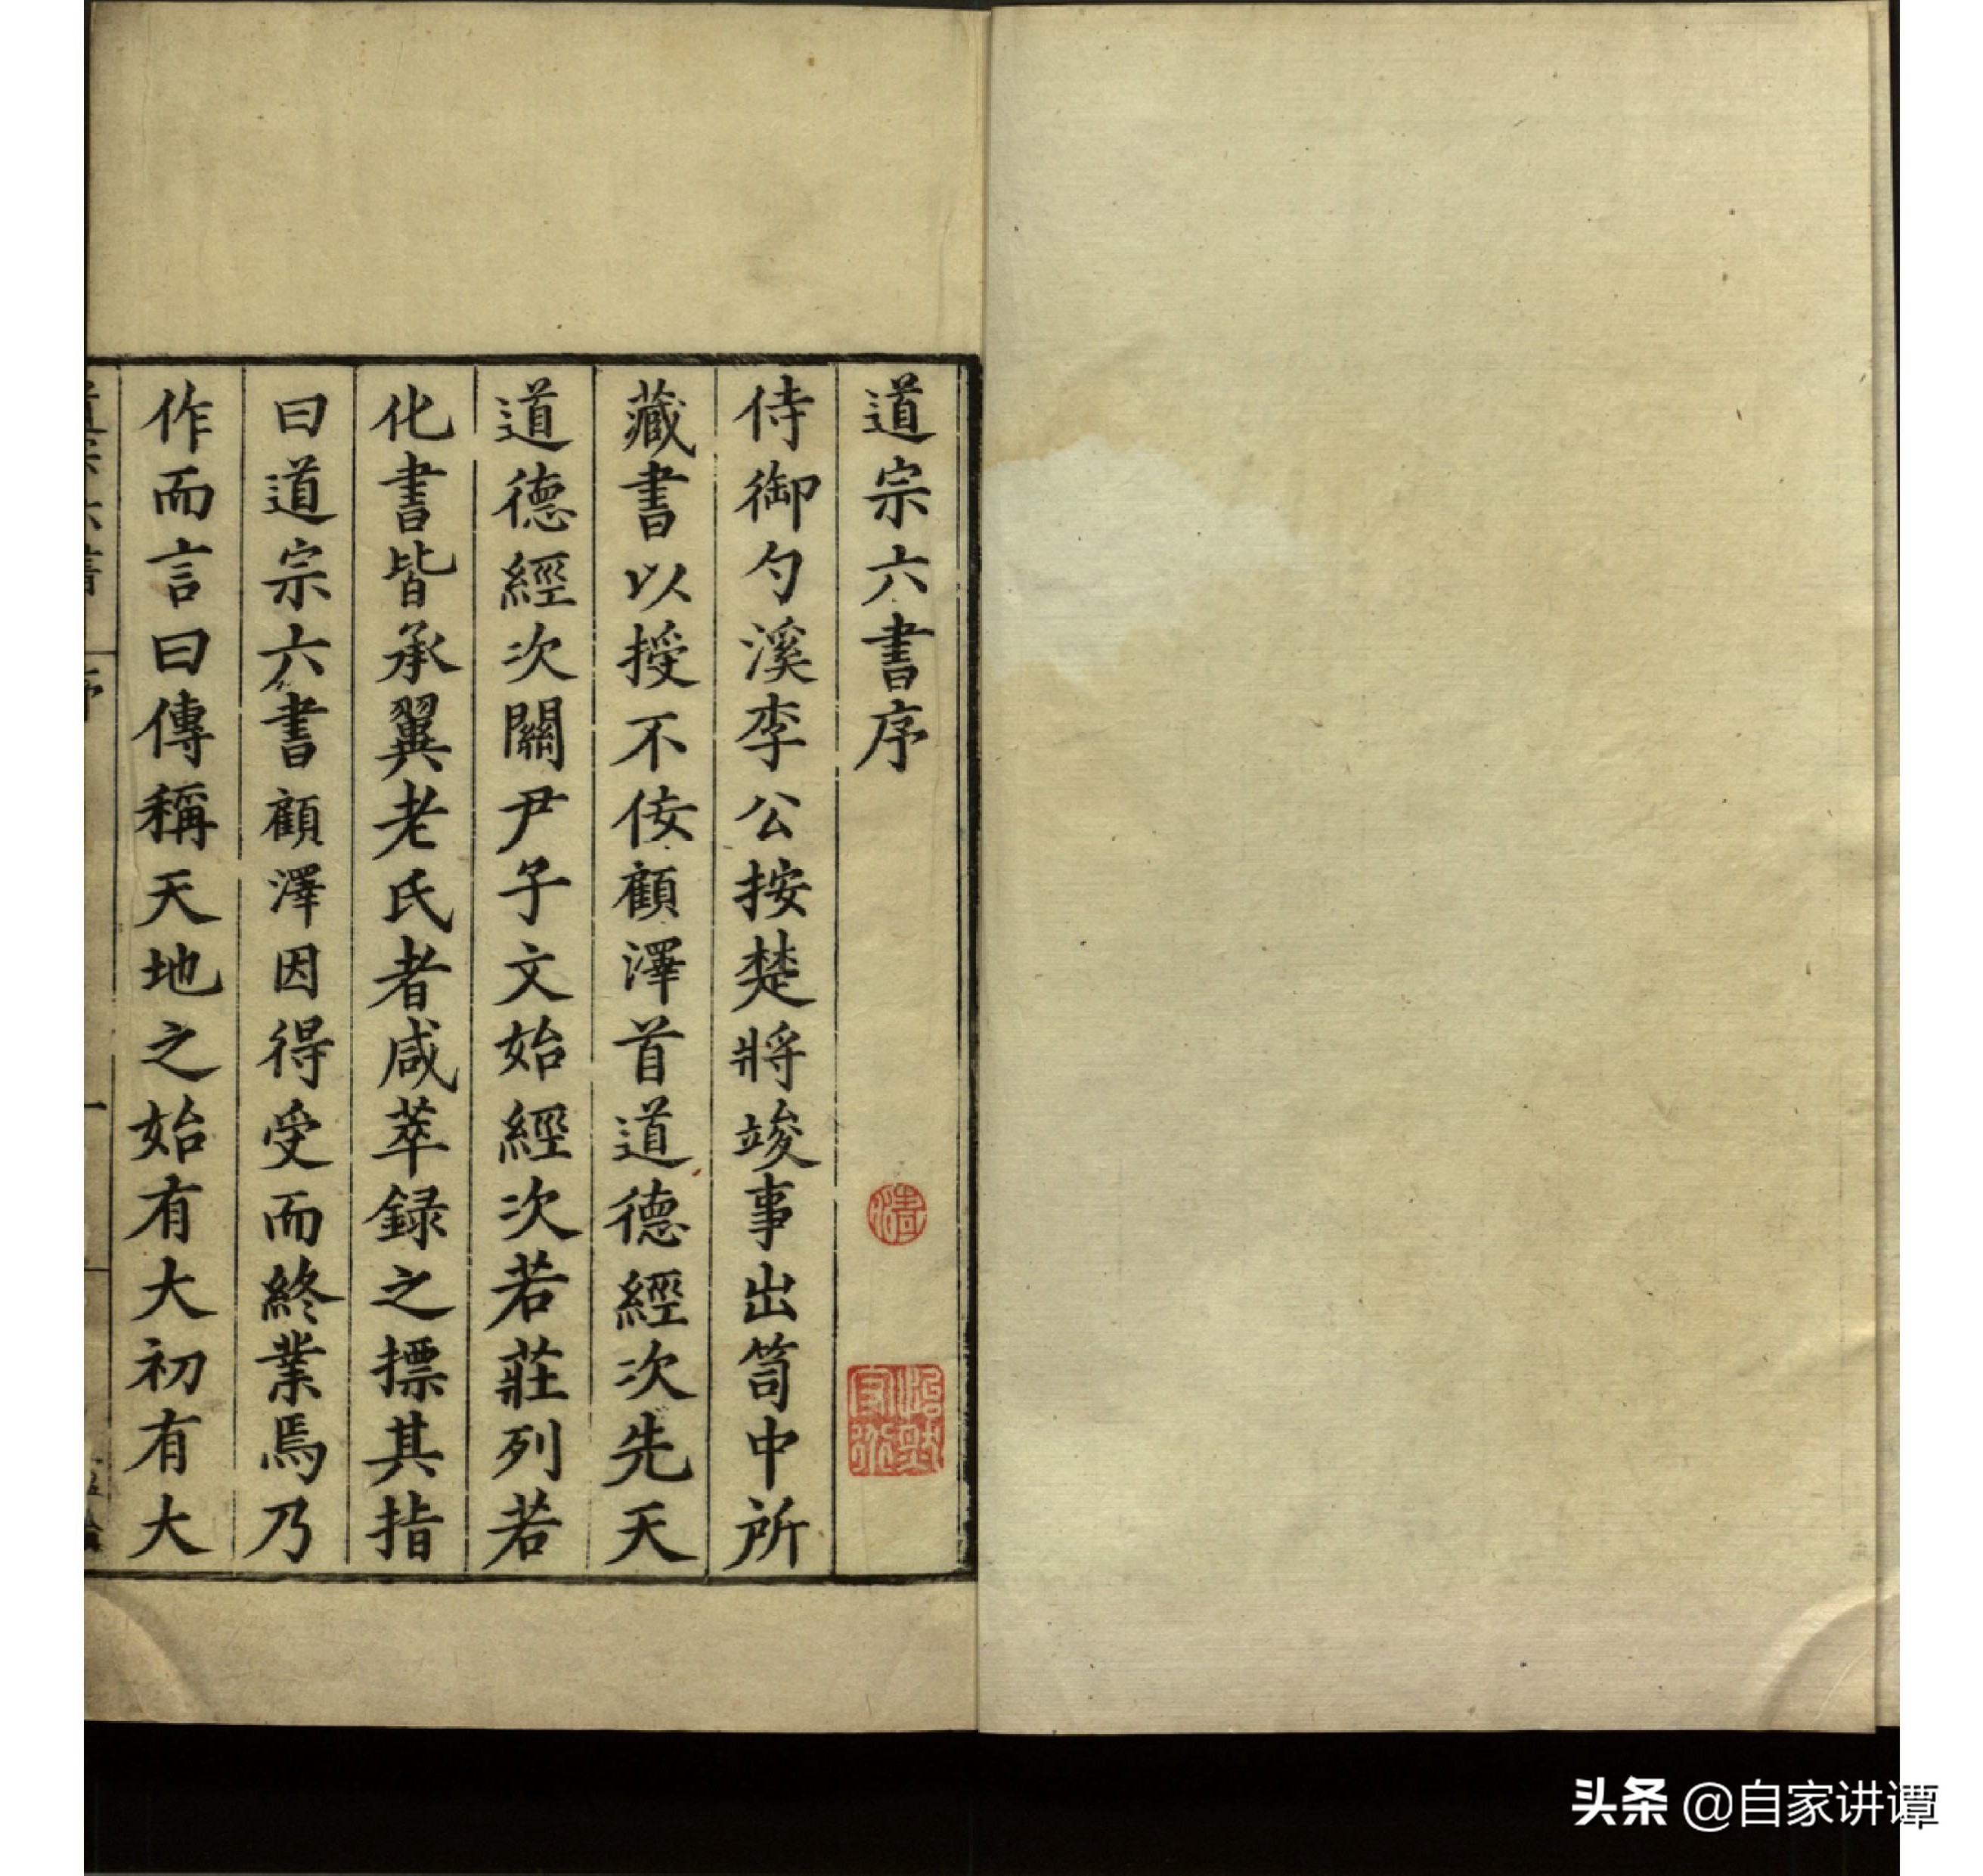 道宗六書序
侍御勺溪李公按楚將竣事出笥中所
藏書以授不佞顧澤首道德經次先天
道德經次關尹子文始經次若莊列若
化書皆承翼老氏者咸萃録之摽其指
曰道宗六書顧澤因得受而終業焉乃
作而言曰傳稱天地之始有大初有大
头条 @自家讲谭